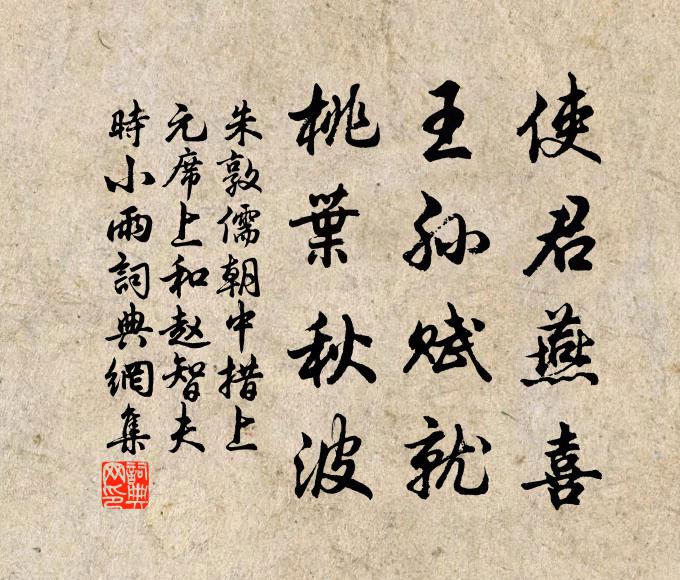 使君燕喜
王孙赋就
桃葉秋波
朱敦儒朝中措上
元席上和赵智夫
時小雨詞典網集
詞典
网印